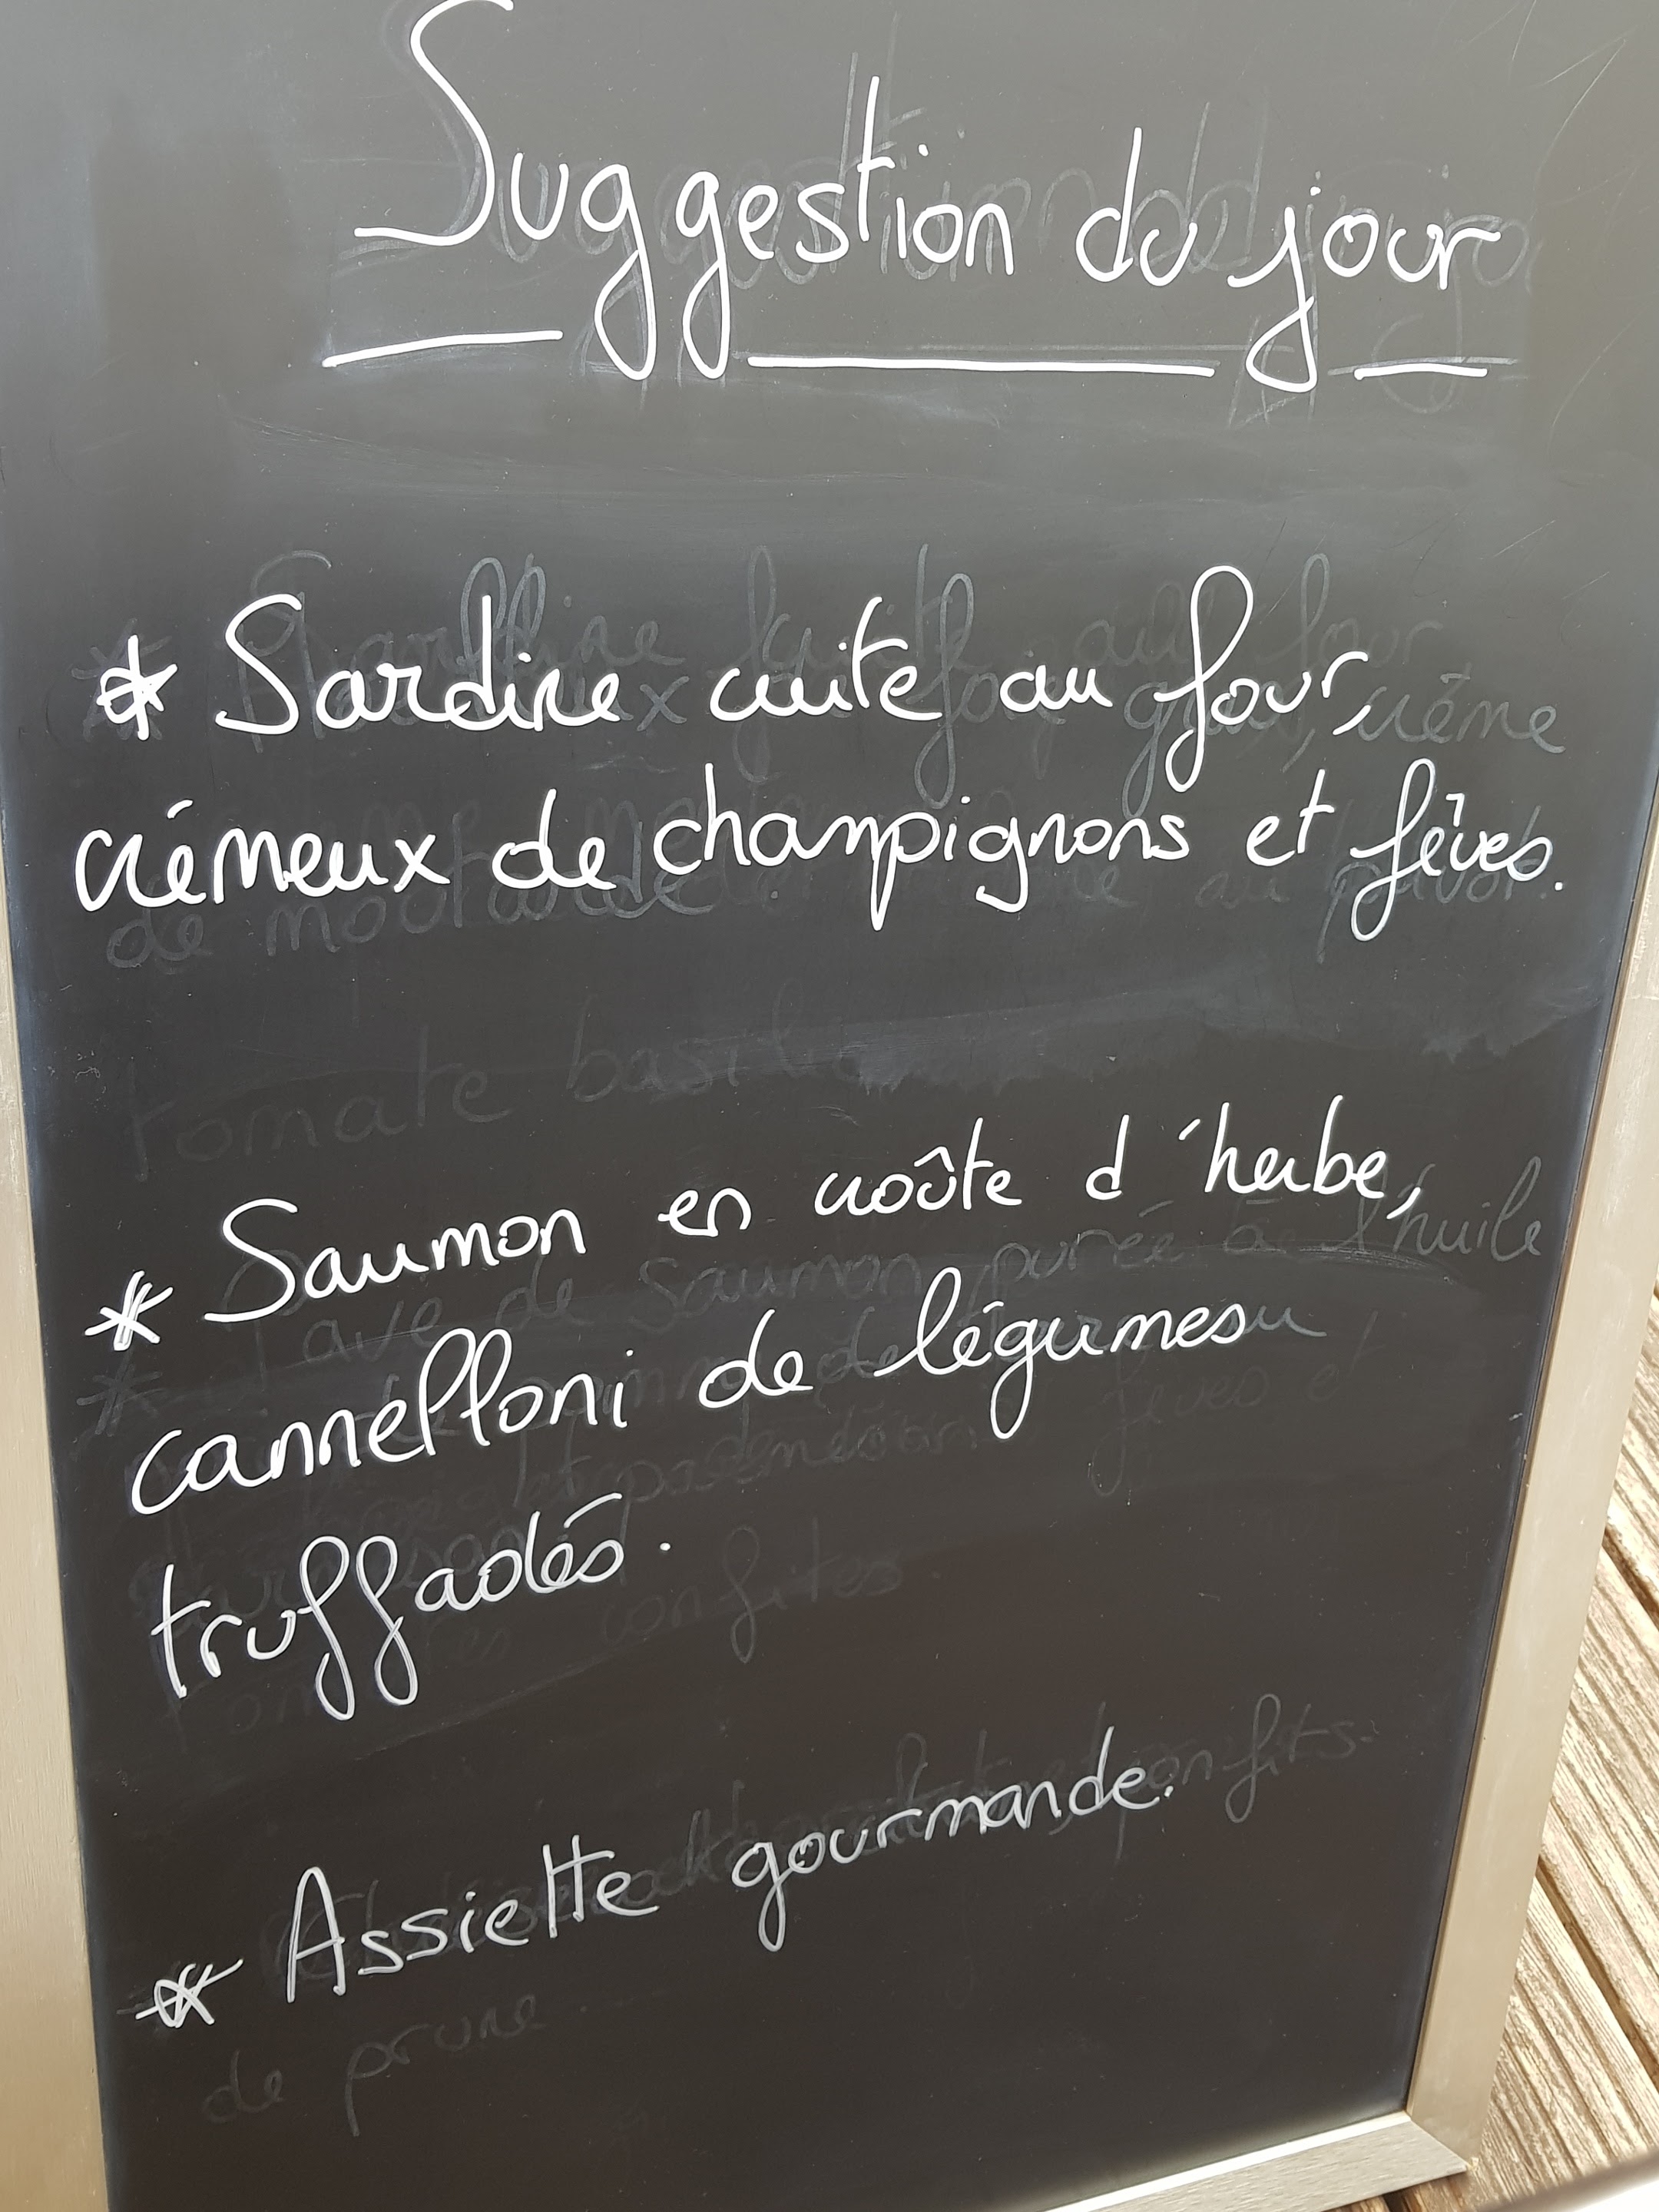 Suggestion du jour
* Sardine cuite au four,
crémeux de champignons et fêves.
* Saumon en croûte d'herbe,
cannelloni de légumes
truffadés.
* Assiette gourmande.